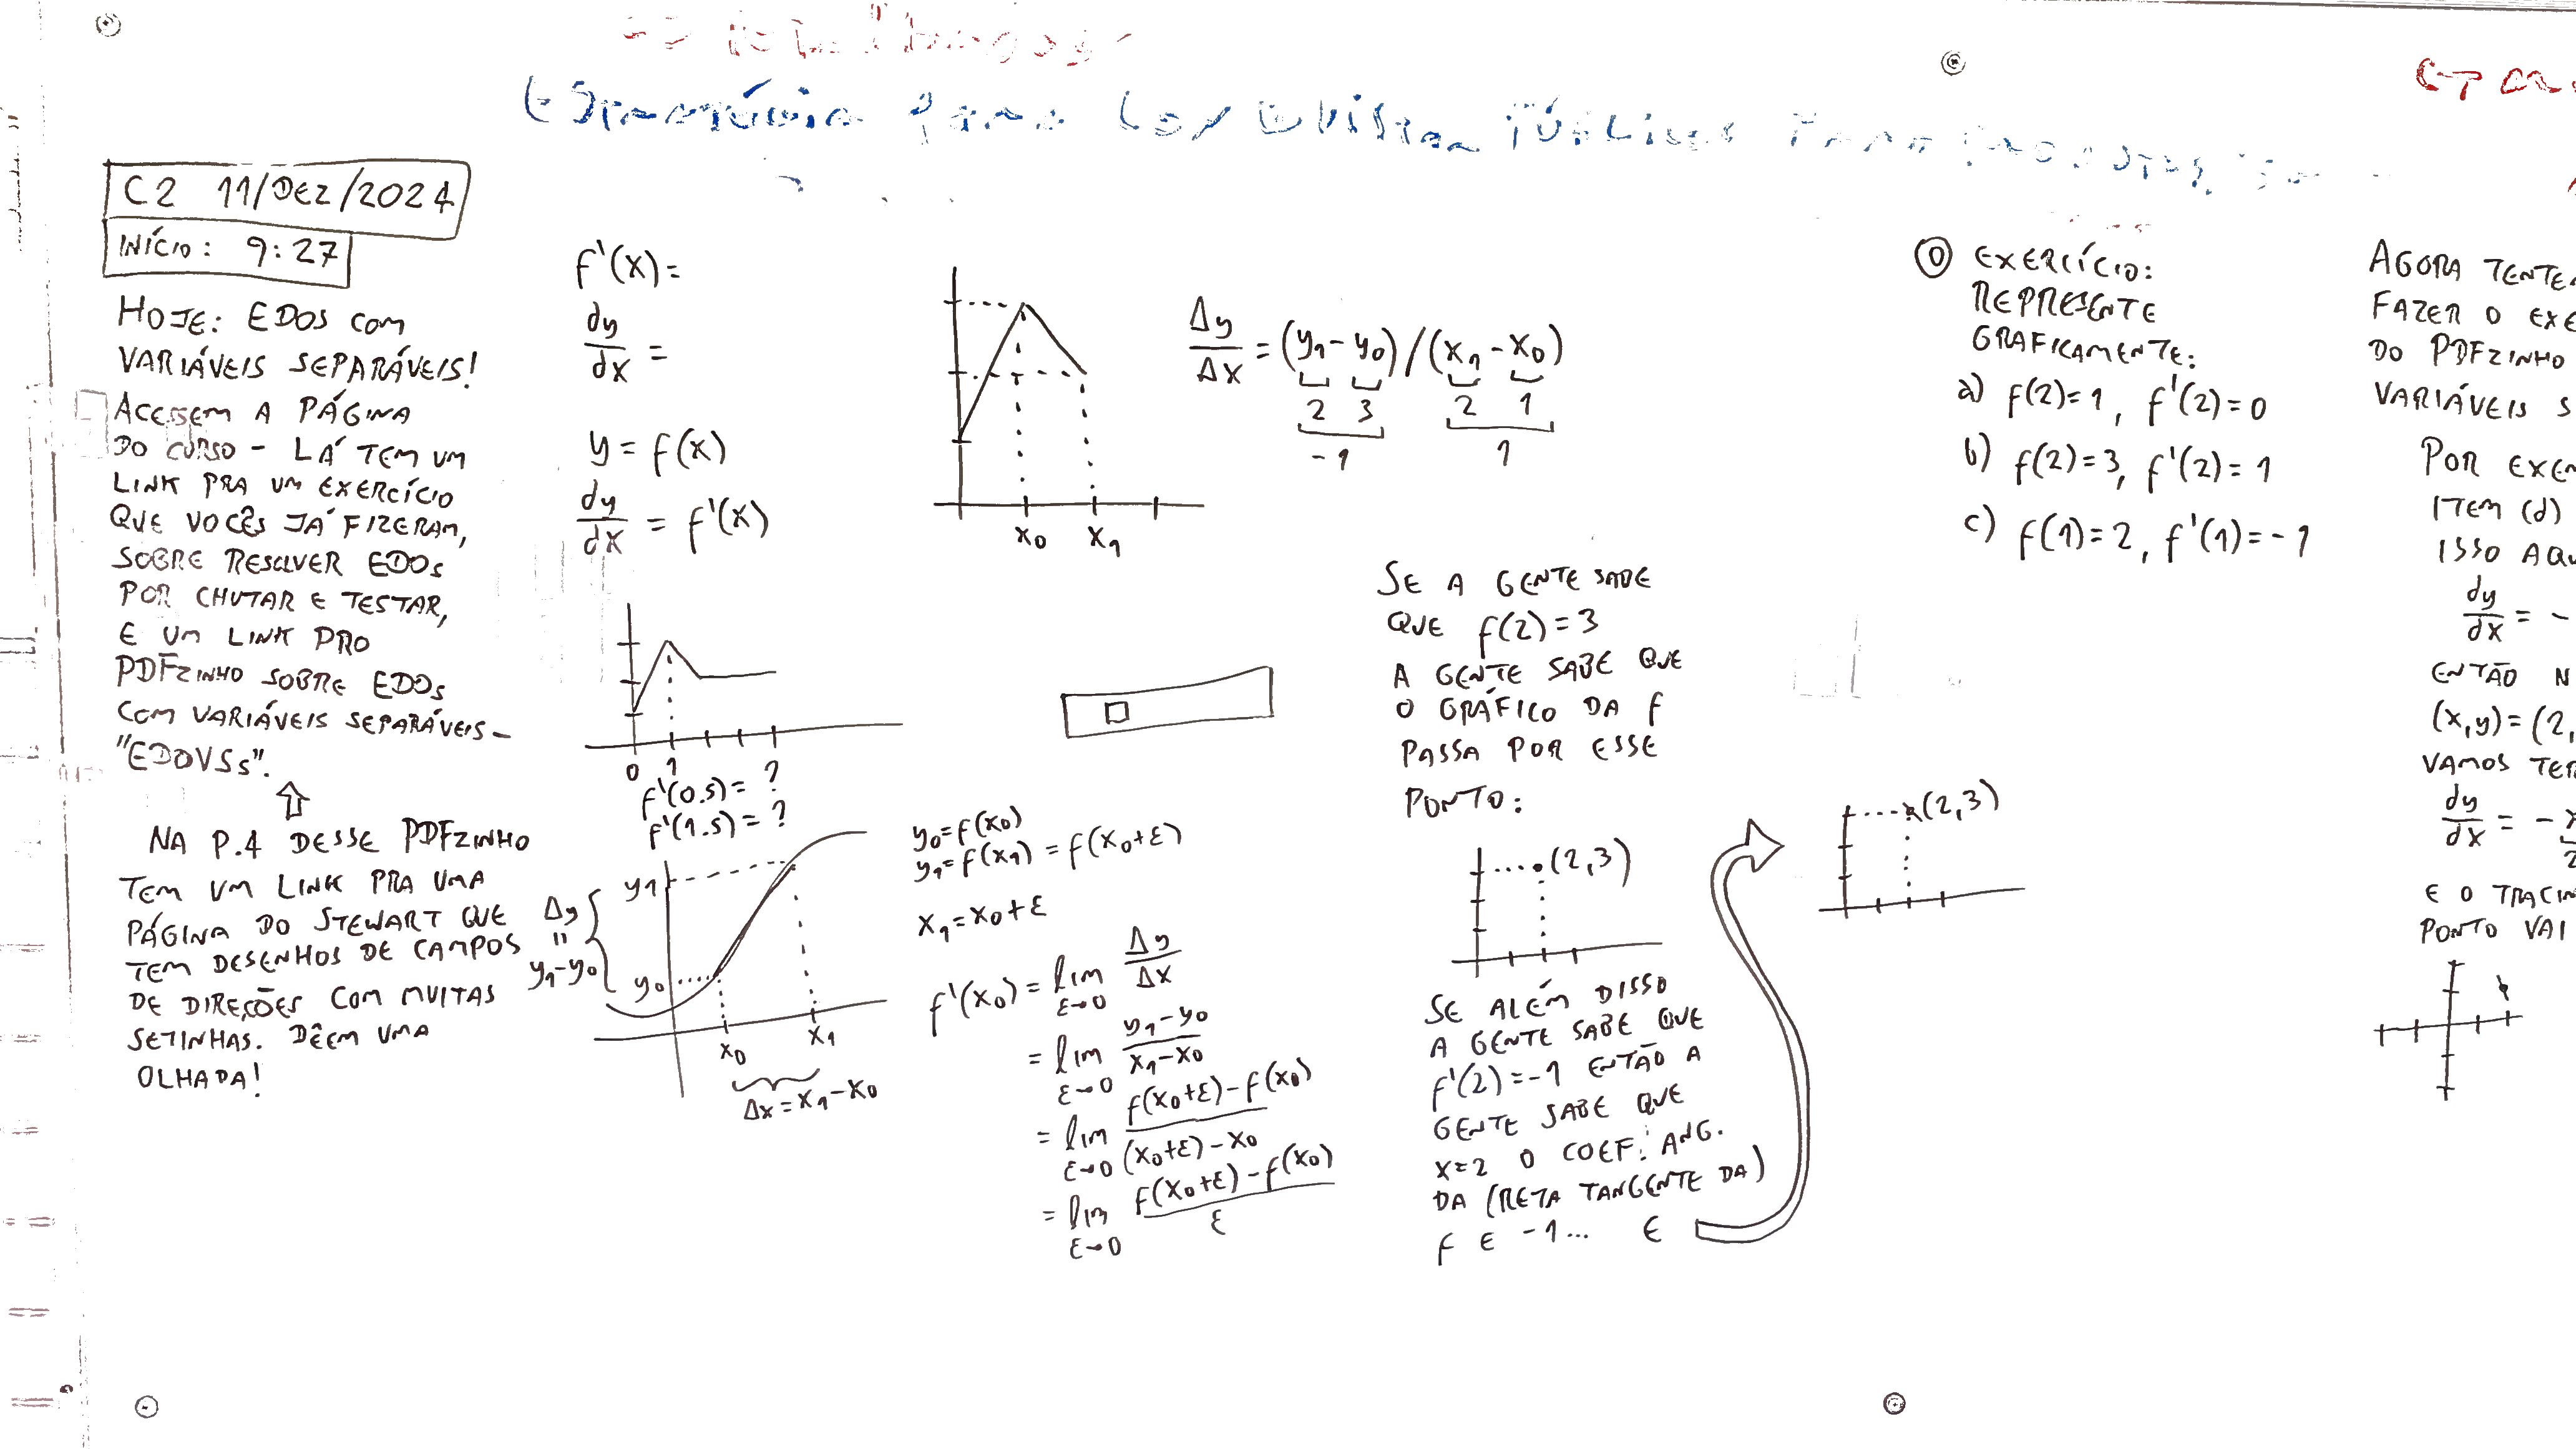 C2 11/DEZ/2024
INÍCIO: 9:27
HOJE: EDOS COM
VARIÁVEIS SEPARÁVEIS!
ACESSEM A PÁGINA
DO CURSO - LÁ TEM UM
LINK PRA UM EXERCÍCIO
QUE VOCÊS JÁ FIZERAM,
SOBRE RESOLVER EDOs
POR CHUTAR E TESTAR,
E UM LINK PRO
PDFZINHO SOBRE EDOs
COM VARIÁVEIS SEPARÁVEIS -
"EDOVSs".
NA P.4 DESSE PDFZINHO
TEM UM LINK PRA UMA
PÁGINA DO STEWART QUE
TEM DESENHOS DE CAMPOS
DE DIREÇÕES COM MUITAS
SETINHAS. DÊEM UMA
OLHADA!
f'(x)=
dy/dx =
y = f(x)
dy/dx = f'(x)
0 1
f'(0.5) = ?
f'(1.5) = ?
y1
Δy
"
y1-y0
y0
x0 x1
Δx = x1-x0
x0 x1
Δy/Δx = (y1-y0)/(x1-x0)
2 3 2 1
-1 1
y0=f(x0)
y1=f(x1) = f(x0+ε)
x1=x0+ε
f'(x0) = lim ε→0 Δy/Δx
= lim ε→0 (y1-y0)/(x1-x0)
= lim ε→0 (f(x0+ε)-f(x0))/((x0+ε)-x0)
= lim ε→0 (f(x0+ε)-f(x0))/ε
SE A GENTE SABE
QUE f(2)=3
A GENTE SABE QUE
O GRÁFICO DA f
PASSA POR ESSE
PONTO:
(2,3)
SE ALÉM DISSO
A GENTE SABE QUE
f'(2)=-1 ENTÃO A
GENTE SABE QUE
x=2 O COEF. ANG.
DA (RETA TANGENTE DA)
f E -1... E
(2,3)
0 EXERCÍCIO:
REPRESENTE
GRAFICAMENTE:
a) f(2)=1, f'(2)=0
b) f(2)=3, f'(2)=1
c) f(1)=2, f'(1)=-1
AGORA TENTE
FAZER O EXE
DO PDFZINHO
VARIÁVEIS S
POR EXEM
ITEM (d)
ISSO AQU
dy/dx = -
ENTÃO N
(x,y)=(2,
VAMOS TER
dy/dx = -x/2
E O TRACIN
PONTO VAI